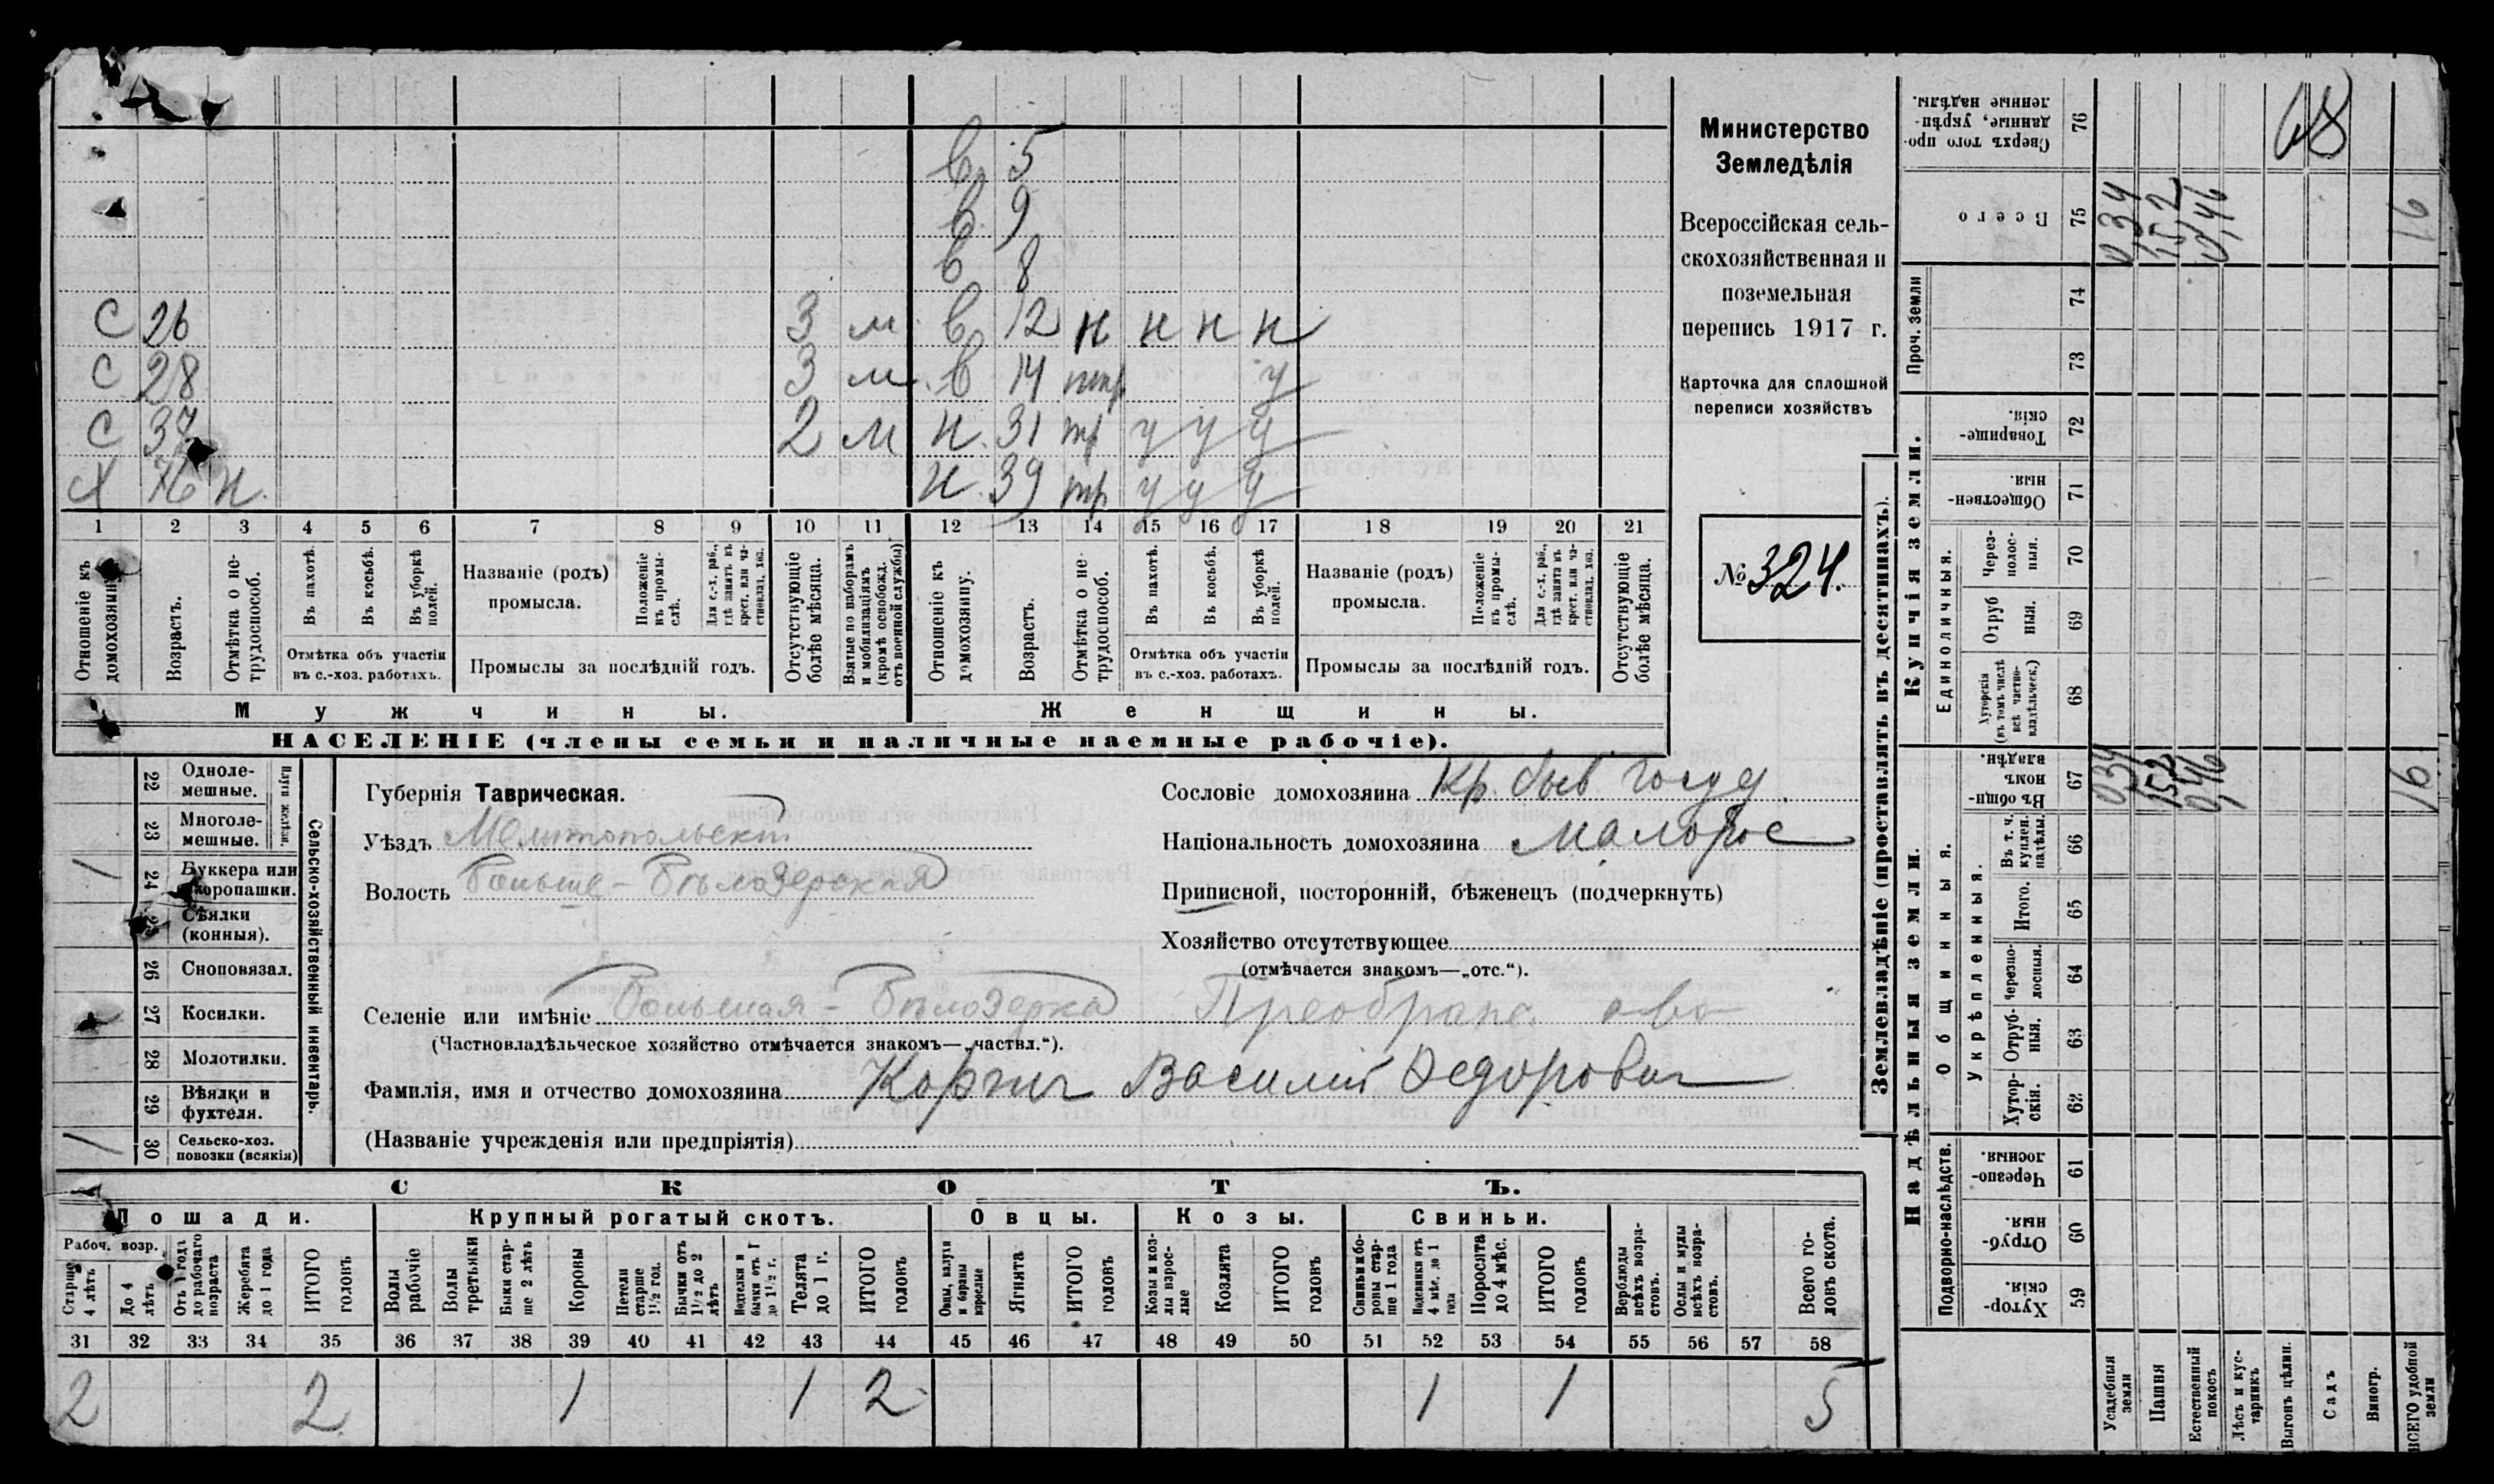 в. 5
в. 9
в. 8
С 26 3 м в. 12 н н н н
С 28 3 м в 14 ппр у
С 37 2 м н. 31 пр у у у
Х 76 н. н. 39 пр у у у
1 2 3 4 5 6 7 8 9 10 11 12 13 14 15 16 17 18 19 20 21
Отношеніе къ домохозяину.
Возрастъ.
Отмѣтка о нетрудоспособ.
Въ пахотѣ.
Въ косьбѣ.
Въ уборкѣ полей.
Отмѣтка объ участіи въ с.-хоз. работахъ.
Названіе (родъ) промысла.
Положеніе въ промыслѣ.
Для с.-х. раб., гдѣ занятъ въ крест. или частновлад. хоз.
Промыслы за послѣдній годъ.
Отсутствующіе болѣе мѣсяца.
Взятые по наборамъ и мобилизаціямъ (кромѣ освобожд. отъ военной службы)
Отношеніе къ домохозяину.
Возрастъ.
Отмѣтка о нетрудоспособ.
Въ пахотѣ.
Въ косьбѣ.
Въ уборкѣ полей.
Отмѣтка объ участіи въ с.-хоз. работахъ.
Названіе (родъ) промысла.
Положеніе въ промыслѣ.
Для с.-х. раб., гдѣ занятъ въ крест. или частновлад. хоз.
Промыслы за послѣдній годъ.
Отсутствующіе болѣе мѣсяца.
Мужчины.
Женщины.
НАСЕЛЕНІЕ (члены семьи и наличные наемные рабочіе).
Министерство
Земледѣлія
Всероссійская сель-
скохозяйственная и
поземельная
перепись 1917 г.
Карточка для сплошной
переписи хозяйствъ
№ 324.
22 Одноле-мешные.
23 Многоле-мешные.
Плуги желѣзн.
24 Буккера или скоропашки. /
25 Сѣялки (конныя).
26 Сноповязал.
27 Косилки.
28 Молотилки.
29 Вѣялки и фухтеля.
30 Сельско-хоз. повозки (всякія) /
Сельско-хозяйственный инвентарь.
Губернія Таврическая.
Уѣздъ Мелитопольскій
Волость Больше-Бѣлозерская
Сословіе домохозяина Кр. быв. Госуд.
Національность домохозяина Малорос
Приписной, посторонній, бѣженецъ (подчеркнуть)
Хозяйство отсутствующее
(отмѣчается знакомъ—„отс.“).
Селеніе или имѣніе Большая-Бѣлозерка Преображ. о-во
(Частновладѣльческое хозяйство отмѣчается знакомъ—„частвл.“).
Фамилія, имя и отчество домохозяина Василій Федорович
(Названіе учрежденія или предпріятія)
СКОТЪ.
Лошади. Крупный рогатый скотъ. Овцы. Козы. Свиньи.
Рабоч. возр.
Старше 4 лѣтъ
До 4 лѣтъ
Отъ 1 года до рабочаго возраста
Жеребята до 1 года
ИТОГО головъ
Волы рабочіе
Волы третьяки
Быки старше 2 лѣтъ
Коровы
Петели старше 1½ год.
Бычки отъ 1½ до 2 лѣтъ
Подтелки и бычки отъ 1 до 1½ г.
Телята до 1 г.
ИТОГО головъ
Овцы, валухи и бараны взрослые
Ягнята
ИТОГО головъ
Козы и козлы взрослые
Козлята
ИТОГО головъ
Свиньи и боровы старше 1 года
Подсвинки отъ 4 мѣс. до 1 года
Поросята до 4 мѣс.
ИТОГО головъ
Верблюды всѣхъ возрастовъ.
Ослы и мулы всѣхъ возрастовъ.
Всего головъ скота.
31 32 33 34 35 36 37 38 39 40 41 42 43 44 45 46 47 48 49 50 51 52 53 54 55 56 57 58
2 2 1 1 2 1 1 5
Землевладѣніе (проставлять въ десятинахъ).
Купчія земли.
Надѣльныя земли.
Сверхъ того проданные, укрѣпленные надѣлы. 76 68
Всего 75 0,34 152 0,46 91
Проч. земли 74 73
Товарищескія. 72
Общественныя. 71
Единоличныя.
Черезполосныя. 70
Отрубныя. 69
Хуторскія (въ томъ числѣ всѣ частновладѣльческ.) 68
Общинныя.
Въ общинномъ владѣн. 67 034 152 0,46 91
Укрѣпленныя.
Въ т. ч. куплен. надѣлы. 66
Итого. 65
Черезполосныя. 64
Отрубныя. 63
Хуторскія. 62
Подворно-наслѣдств.
Черезполосныя. 61
Отрубныя. 60
Хуторскія. 59
Усадебныя земли
Пашня
Естественный покосъ
Лѣсъ и кустарникъ
Выгонъ цѣлин.
Садъ
Виногр.
ВСЕГО удобной земли